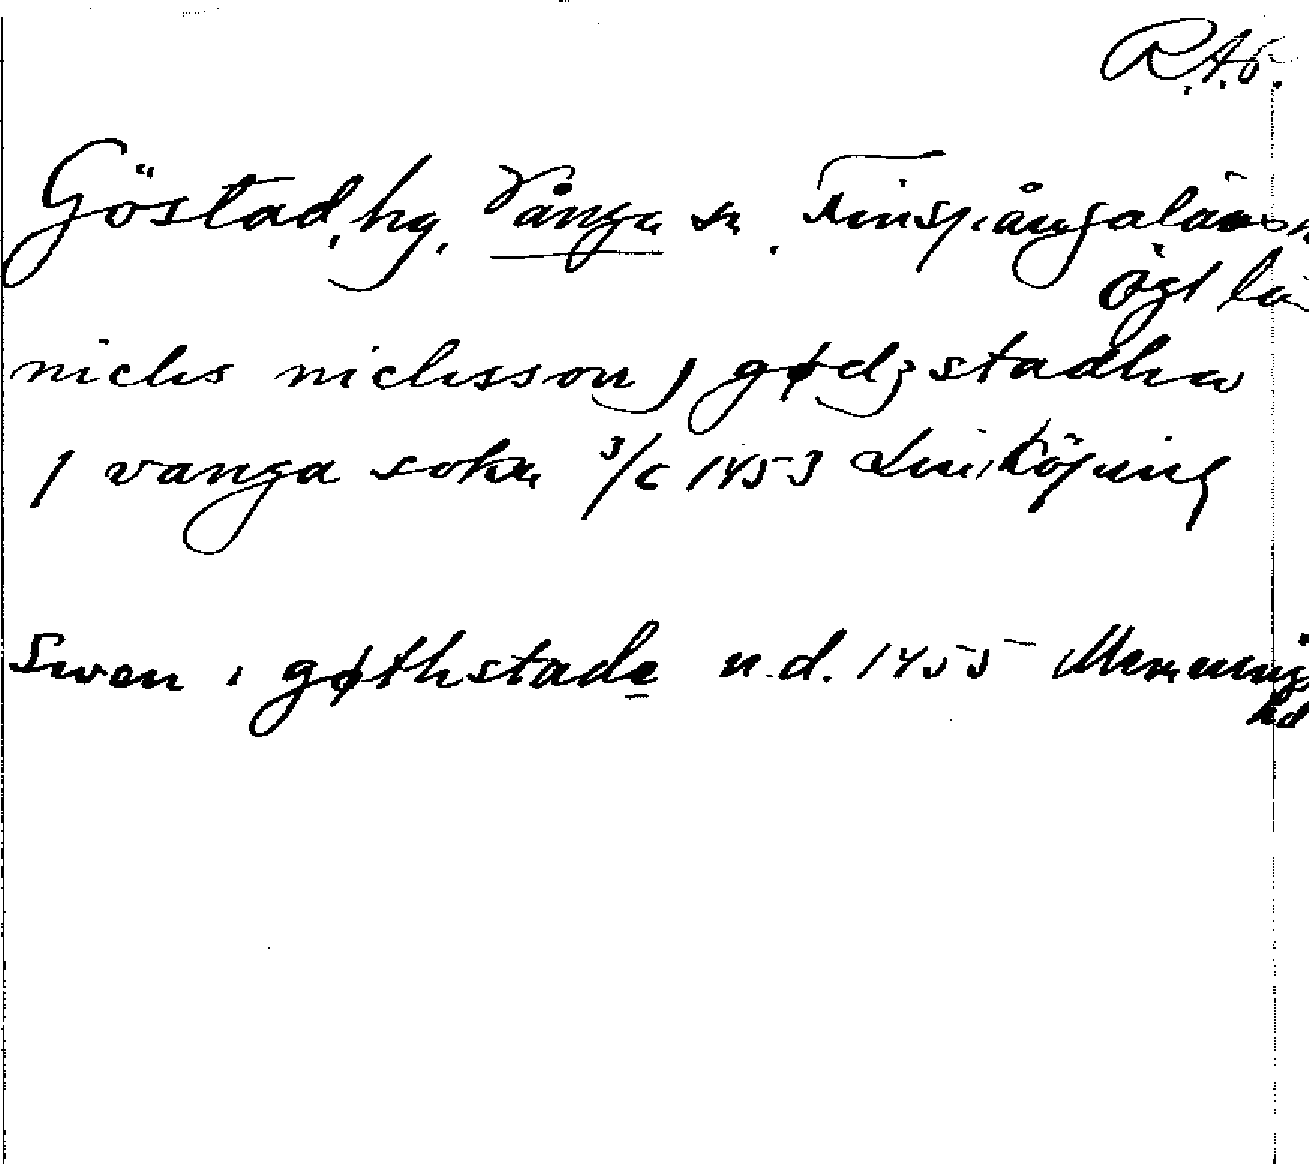 R.A.ö.
Göstad, by, Vånga sn. Finspångalän
Ögl lä
niclis niclisson j gødzstadha
j vanga sokn 3/6 1453 Linköping
Swen i gøthstade u.d. 1455 Memming
hd